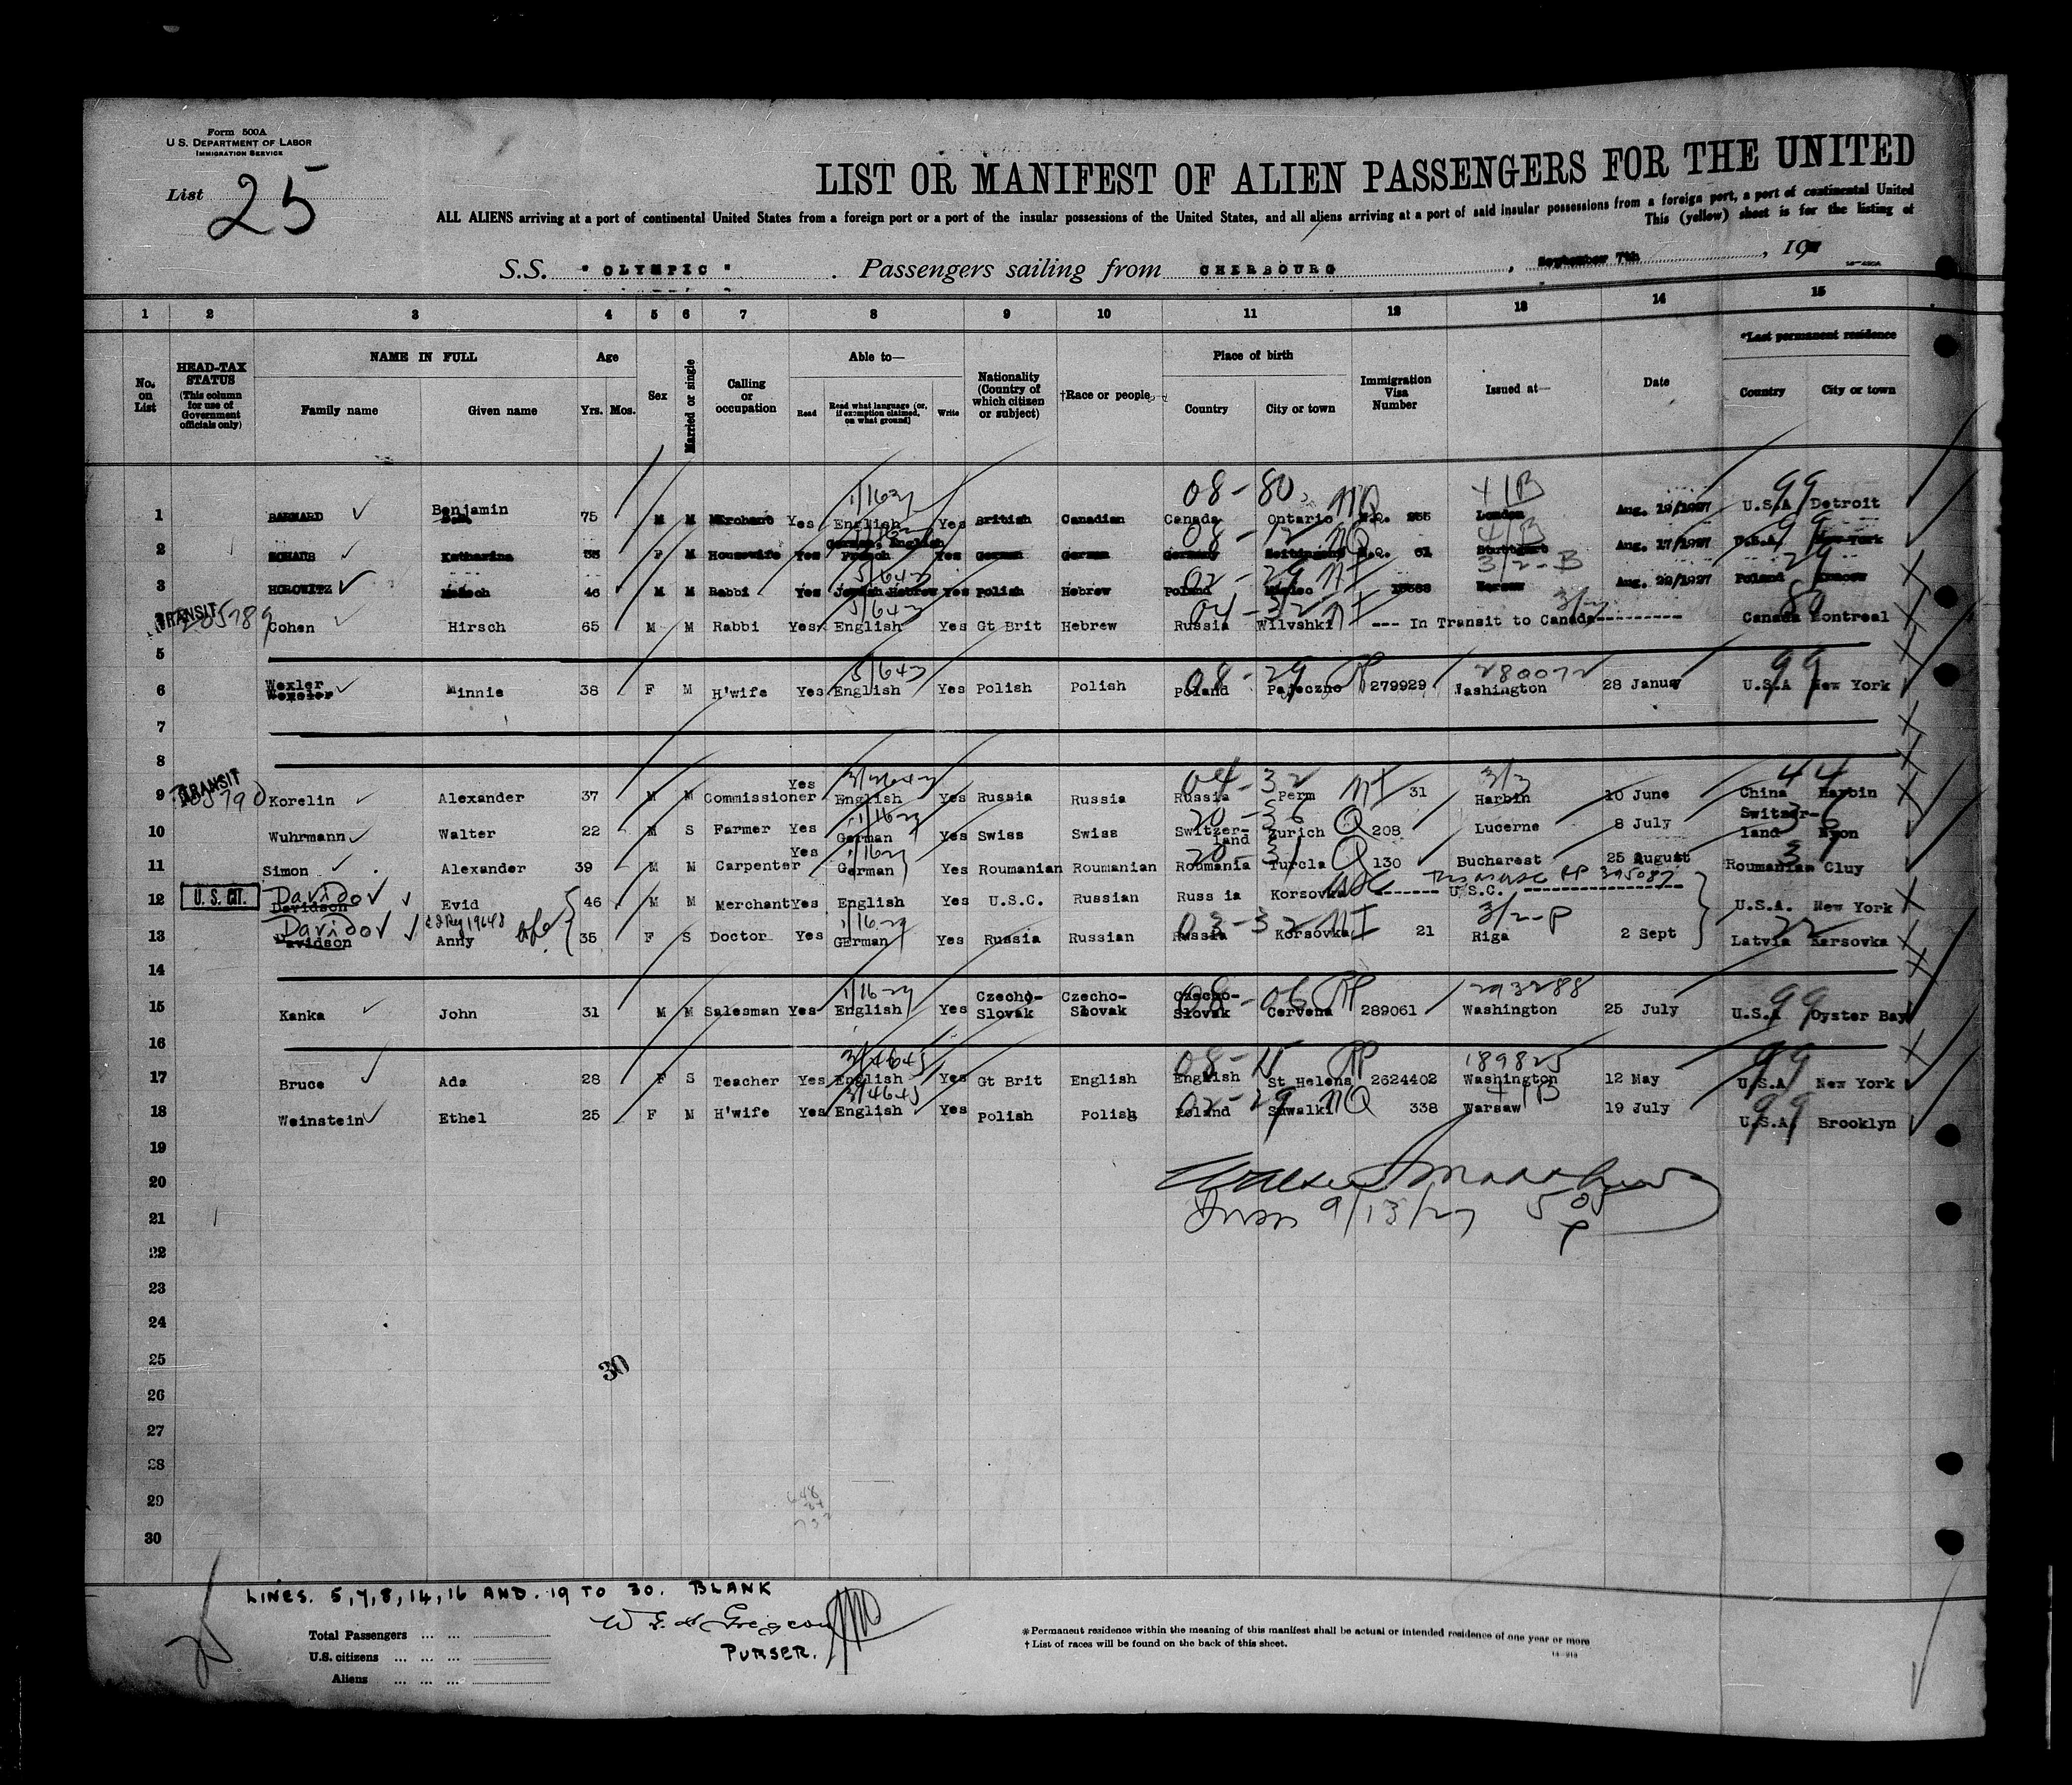 Form 500A
U. S. DEPARTMENT OF LABOR
IMMIGRATION SERVICE
List 25
LIST OR MANIFEST OF ALIEN PASSENGERS FOR THE UNITED
ALL ALIENS arriving at a port of continental United States from a foreign port or a port of the insular possessions of the United States, and all aliens arriving at a port of said insular possessions from a foreign port, a port of continental United
This (yellow) sheet is for the listing of
S.S. "OLYMPIC". Passengers sailing from CHERBOURG, September 7th, 19
1 2 3 4 5 6 7 8 9 10 11 12 13 14 15
No. on List
HEAD-TAX STATUS (This column for use of Government officials only)
NAME IN FULL
Family name Given name
Age
Yrs. Mos.
Sex
Married or single
Calling or occupation
Able to—
Read Read what language (or, if exemption claimed, on what ground) Write
Nationality (Country of which citizen or subject)
†Race or people
Place of birth
Country City or town
Immigration Visa Number
Issued at—
Date
*Last permanent residence
Country City or town
08-80 NQ 4/B 99
1 BARNARD Benjamin 75 M M Merchant Yes English Yes British Canadian Canada Ontario N.Q. 255 London Aug. 19/1927 U.S.A Detroit
2 SCHAUB Katharina 53 F M Housewife Yes German. English French Yes German German Germany N.Q. 61 Stuttgart Aug. 17/1927 U.S.A. New York
3/2-B
3 HOROWITZ 46 M M Rabbi Yes Jewish Hebrew Yes Polish Hebrew Poland Mielec Warsaw Aug. 29/1927 Poland Krakow
4 TRANSIT Cohen Hirsch 65 M M Rabbi Yes English Yes Gt Brit Hebrew Russia Wilvshki --- In Transit to Canada--------- Canada Montreal
5
08-29 PP 280072 99
6 Wexler Minnie 38 F M H'wife Yes English Yes Polish Polish Poland Pajeczno 279929 Washington 28 January U.S.A New York
7
8
04-32 NI 3/3 44
9 TRANSIT Korelin Alexander 37 M M Commissioner Yes English Yes Russia Russia Russia Perm 31 Harbin 10 June China Harbin
10 Wuhrmann Walter 22 M S Farmer Yes German Yes Swiss Swiss Switzer-land Zurich Q 208 Lucerne 8 July Switzer-land Nyon
11 Simon Alexander 39 M M Carpenter Yes German Yes Roumanian Roumanian Roumania Turcla Q 130 Bucharest 25 August Roumanian Cluy
12 U. S. CIT. Davidov Davidson Evid 46 M M Merchant Yes English Yes U.S.C. Russian Russ ia Korsovka USC ------- U.S.C. ----------------- U.S.A. New York
13 Davidov Davidson Anny 35 F S Doctor Yes GErman Yes Russia Russian Russia Korsovka 21 Riga 2 Sept Latvia Karsovka
14
08-06 PP 293288 99
15 Kanka John 31 M M Salesman Yes English Yes Czecho-Slovak Czecho-Slovak Czecho-Slovak Cervena 289061 Washington 25 July U.S.A Oyster Bay
16
08-11 PP 189825 99
17 Bruce Ada 28 F S Teacher Yes English Yes Gt Brit English English St Helens 2624402 Washington 12 May U.S.A New York
18 Weinstein Ethel 25 F M H'wife Yes English Yes Polish Polish Poland Suwalki NQ 338 Warsaw 19 July U.S.A. Brooklyn
19
20
21
9/13/27
22
23
24
25
30
26
27
28
29
30
LINES. 5,7,8,14,16 AND. 19 TO 30. BLANK
PURSER.
Total Passengers
U.S. citizens
Aliens
*Permanent residence within the meaning of this manifest shall be actual or intended residence of one year or more
†List of races will be found on the back of this sheet.